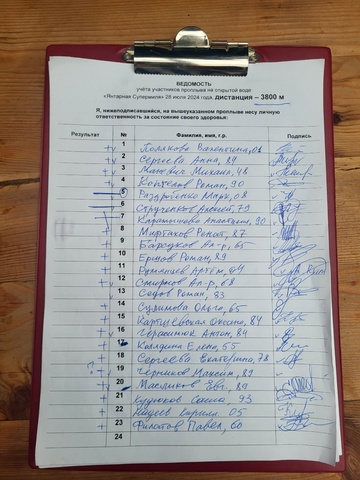 ВЕДОМОСТЬ
учёта участников проплыва на открытой воде
«Янтарная Супермиля» 28 июля 2024 года. дистанция – 3800 м
Я, нижеподписавшийся, на вышеуказанном проплыве несу личную
ответственность за состояние своего здоровья:
Результат № Фамилия, имя, г.р. Подпись
1 Полякова Валентина, 06
2 Сергеева Анна, 84
3 Михаил, 48
4 Роман, 90
5 Марк, 08
6 Алексей, 79
7 Анастасия, 90
8 Муртаков Ренат, 87
9 Бародков Ал-р, 65
10 Ершов Роман, 89
11 Румянцев Артём, 04
12 Смирнов Ал-р, 68
13 Седов Роман, 83
14 Ольга, 65
15 Картшевская Оксана, 84
16 Герасимюк Антон, 84
17 Колядина Елена, 55
18 Сергеева Екатерина, 78
? 19 Черников Максим, 89
20 Масляков Евг, 89
21 Саша, 93
22 Кирилл 05
23 Филатов Павел, 60
24